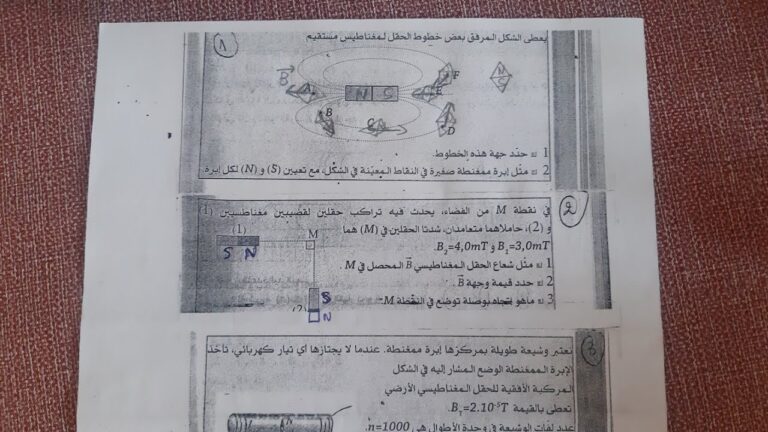 1
يعطى الشكل المرفق بعض خطوط الحقل لمغناطيس مستقيم
B
N S
A
F
E
B
C
D
N
S
1 حدد جهة هذه الخطوط.
2 مثّل إبرة ممغنطة صغيرة في النقاط المعيّنة في الشكل، مع تعيين (S) و (N) لكل إبرة.
2
في نقطة M من الفضاء، يحدث فيه تراكب حقلين لقضيبين مغناطسيين (1)
و (2)، حاملاهما متعامدان، شدتا الحقلين في (M) هما
B₁=3,0mT و B₂=4,0mT.
(1)
S N
M
1 مثّل شعاع الحقل المغناطيسي B المحصل في M.
2 حدد قيمة وجهة B.
3 ماهو إتجاه بوصلة توضع في النقطة M.
S
(2)
N
3
نعتبر وشيعة طويلة بمركزها إبرة ممغنطة. عندما لا يجتازها أي تيار كهربائي، تأخذ
الإبرة الممغنطة الوضع المشار إليه في الشكل
المركبة الأفقية للحقل المغناطيسي الأرضي
تعطى بالقيمة B=2.10⁻⁵T.
عدد لفات الوشيعة في وحدة الأطوال هي n=1000